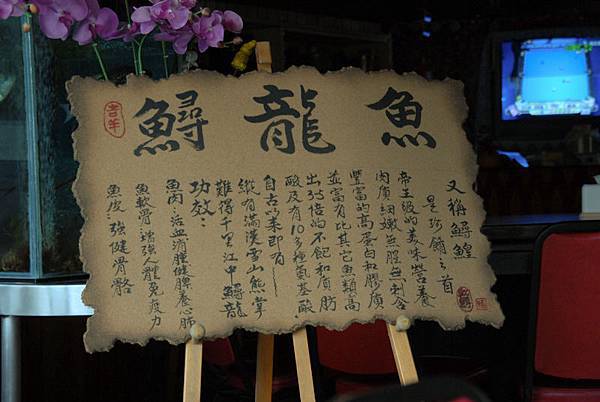 鱘龍魚
又稱鱘鰉
是珍餚之首
帝王級的美味營養
肉質細嫩無腥無刺含
豐富的高蛋白和膠質
並富有比其它魚類高
出3.5倍的不飽和脂肪
酸及有10多種氨基酸.
自古以來即有
縱有滿漢雪山熊掌
難得千里江中鱘龍
功效:
魚肉:活血消腫健脾養心肺
魚軟骨:增強人體免疫力
魚皮:強健骨骼
吉羊